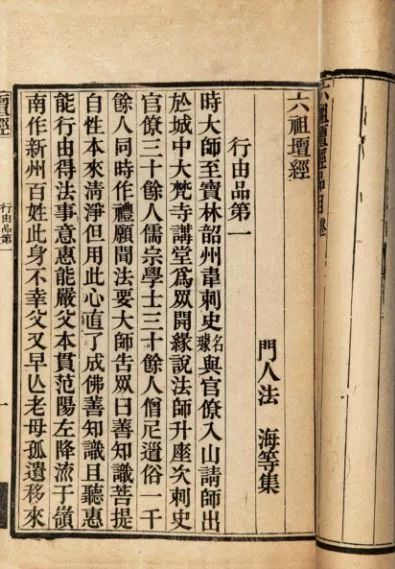 六祖壇經品目終
六祖壇經
門人法 海等集
行由品第一
時大師至寶林韶州韋刺史名璩與官僚入山請師出
於城中大梵寺講堂爲眾開緣說法師升座次刺史
官僚三十餘人儒宗學士三十餘人僧尼道俗一千
餘人同時作禮願聞法要大師告眾曰善知識菩提
自性本來清淨但用此心直了成佛善知識且聽惠
能行由得法事意惠能嚴父本貫范陽左降流于嶺
南作新州百姓此身不幸父又早亾老母孤遺移來
壇經
行由品第一
一